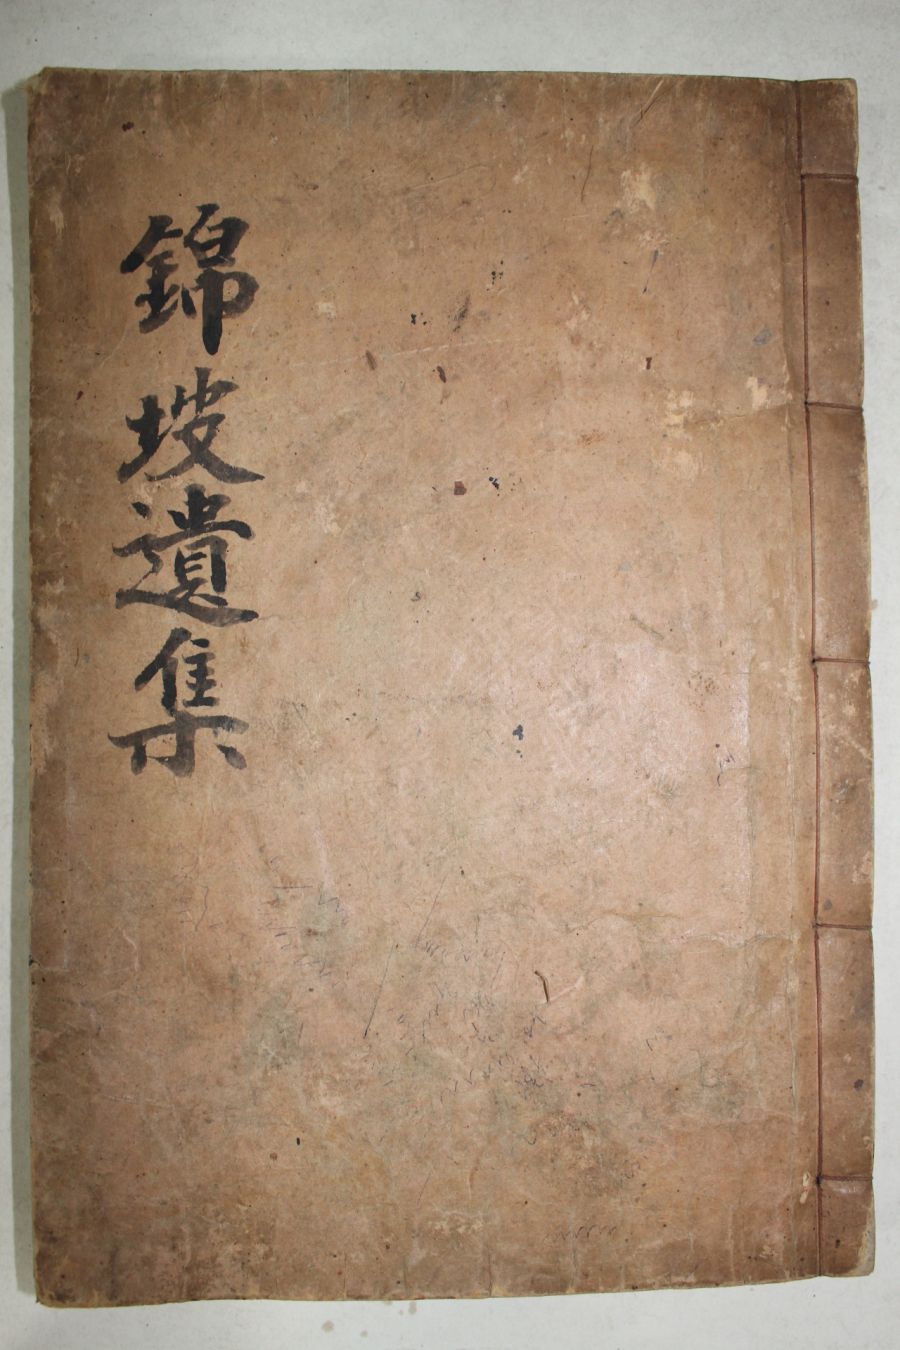 錦坡遺集